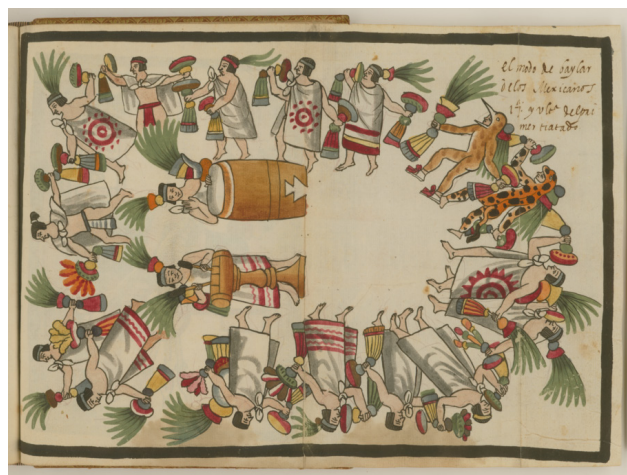 el modo de baylar
de los Mexicanos
17 y ulto del pri
mer tratado